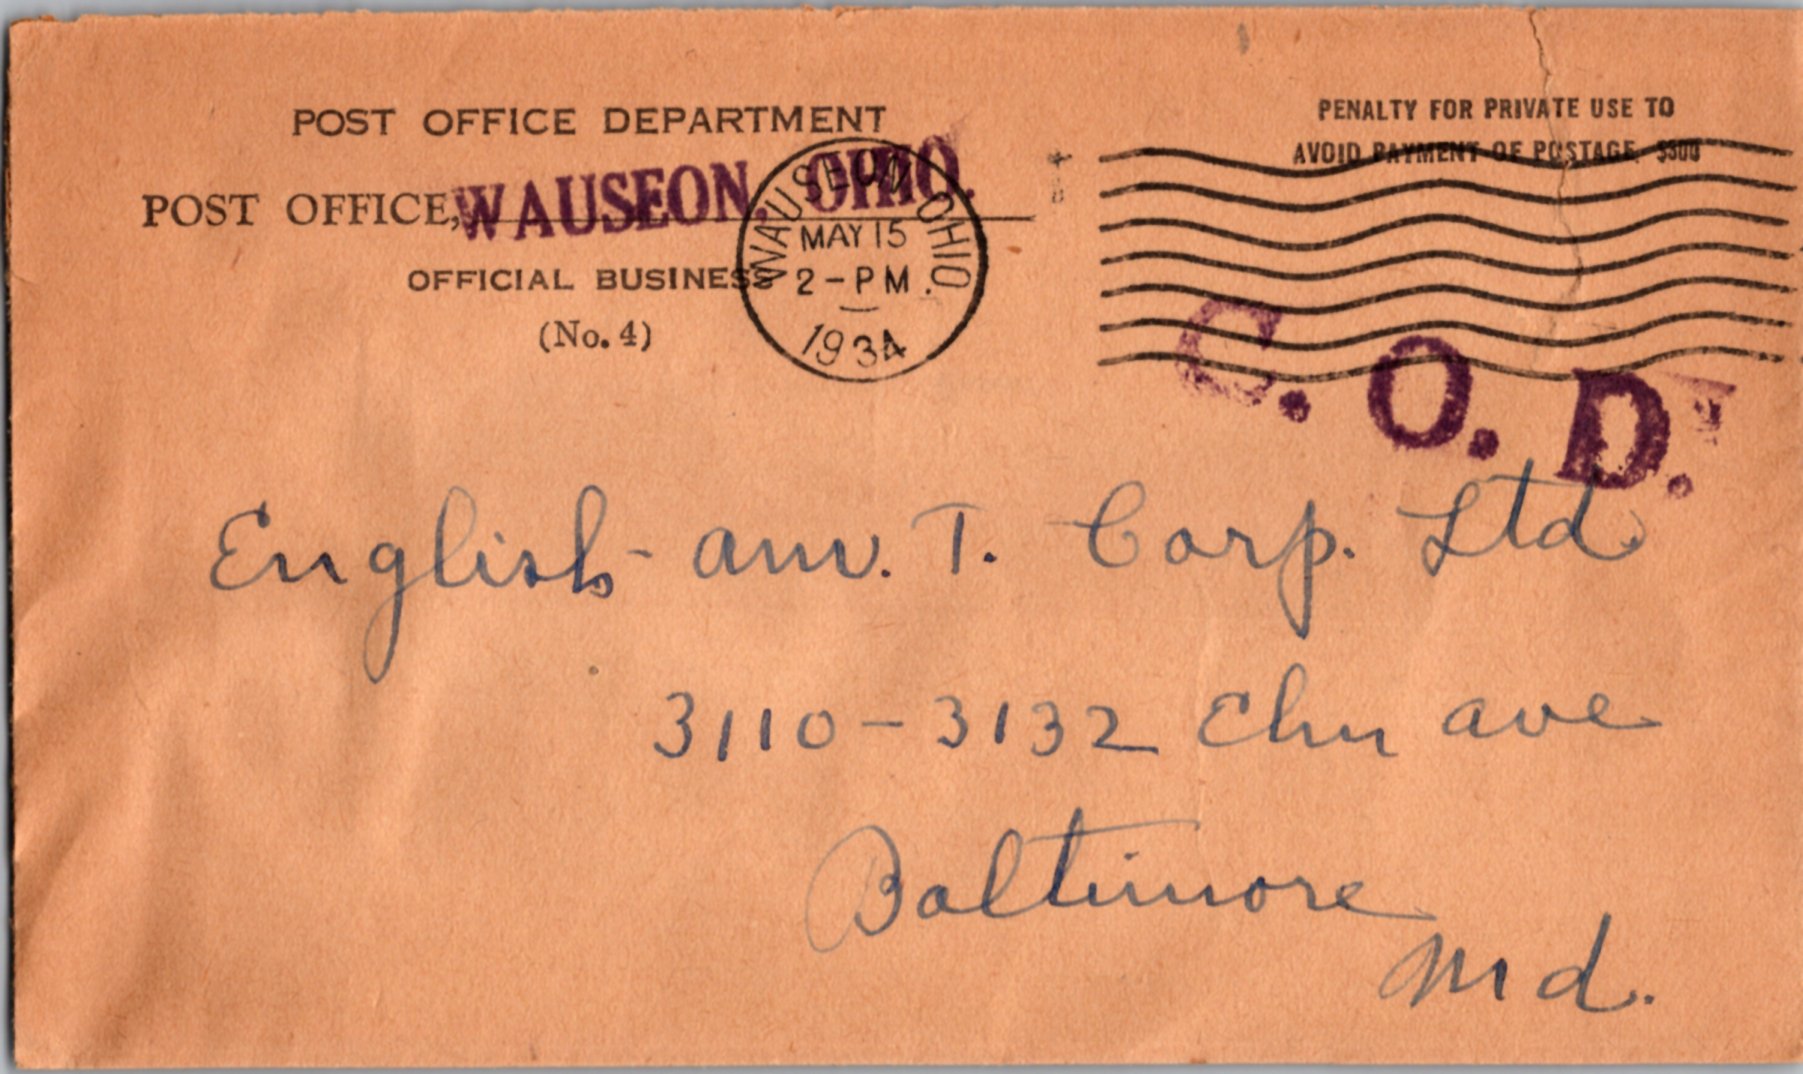 POST OFFICE DEPARTMENT
POST OFFICE, WAUSEON, OHIO.
OFFICIAL BUSINESS
(No. 4)
WAUSEON OHIO.
MAY 15
2-PM.
1934
PENALTY FOR PRIVATE USE TO
AVOID PAYMENT OF POSTAGE, $300
C. O. D.
English-am. T. Corp. Ltd.
3110-3132 Elm ave
Baltimore
Md.